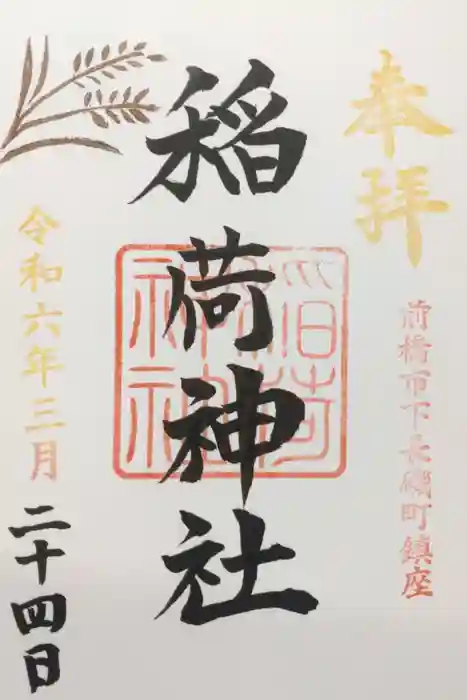 奉拝
前橋市下長磯町鎮座
稲荷神社
稲荷神社
令和六年三月
二十四日